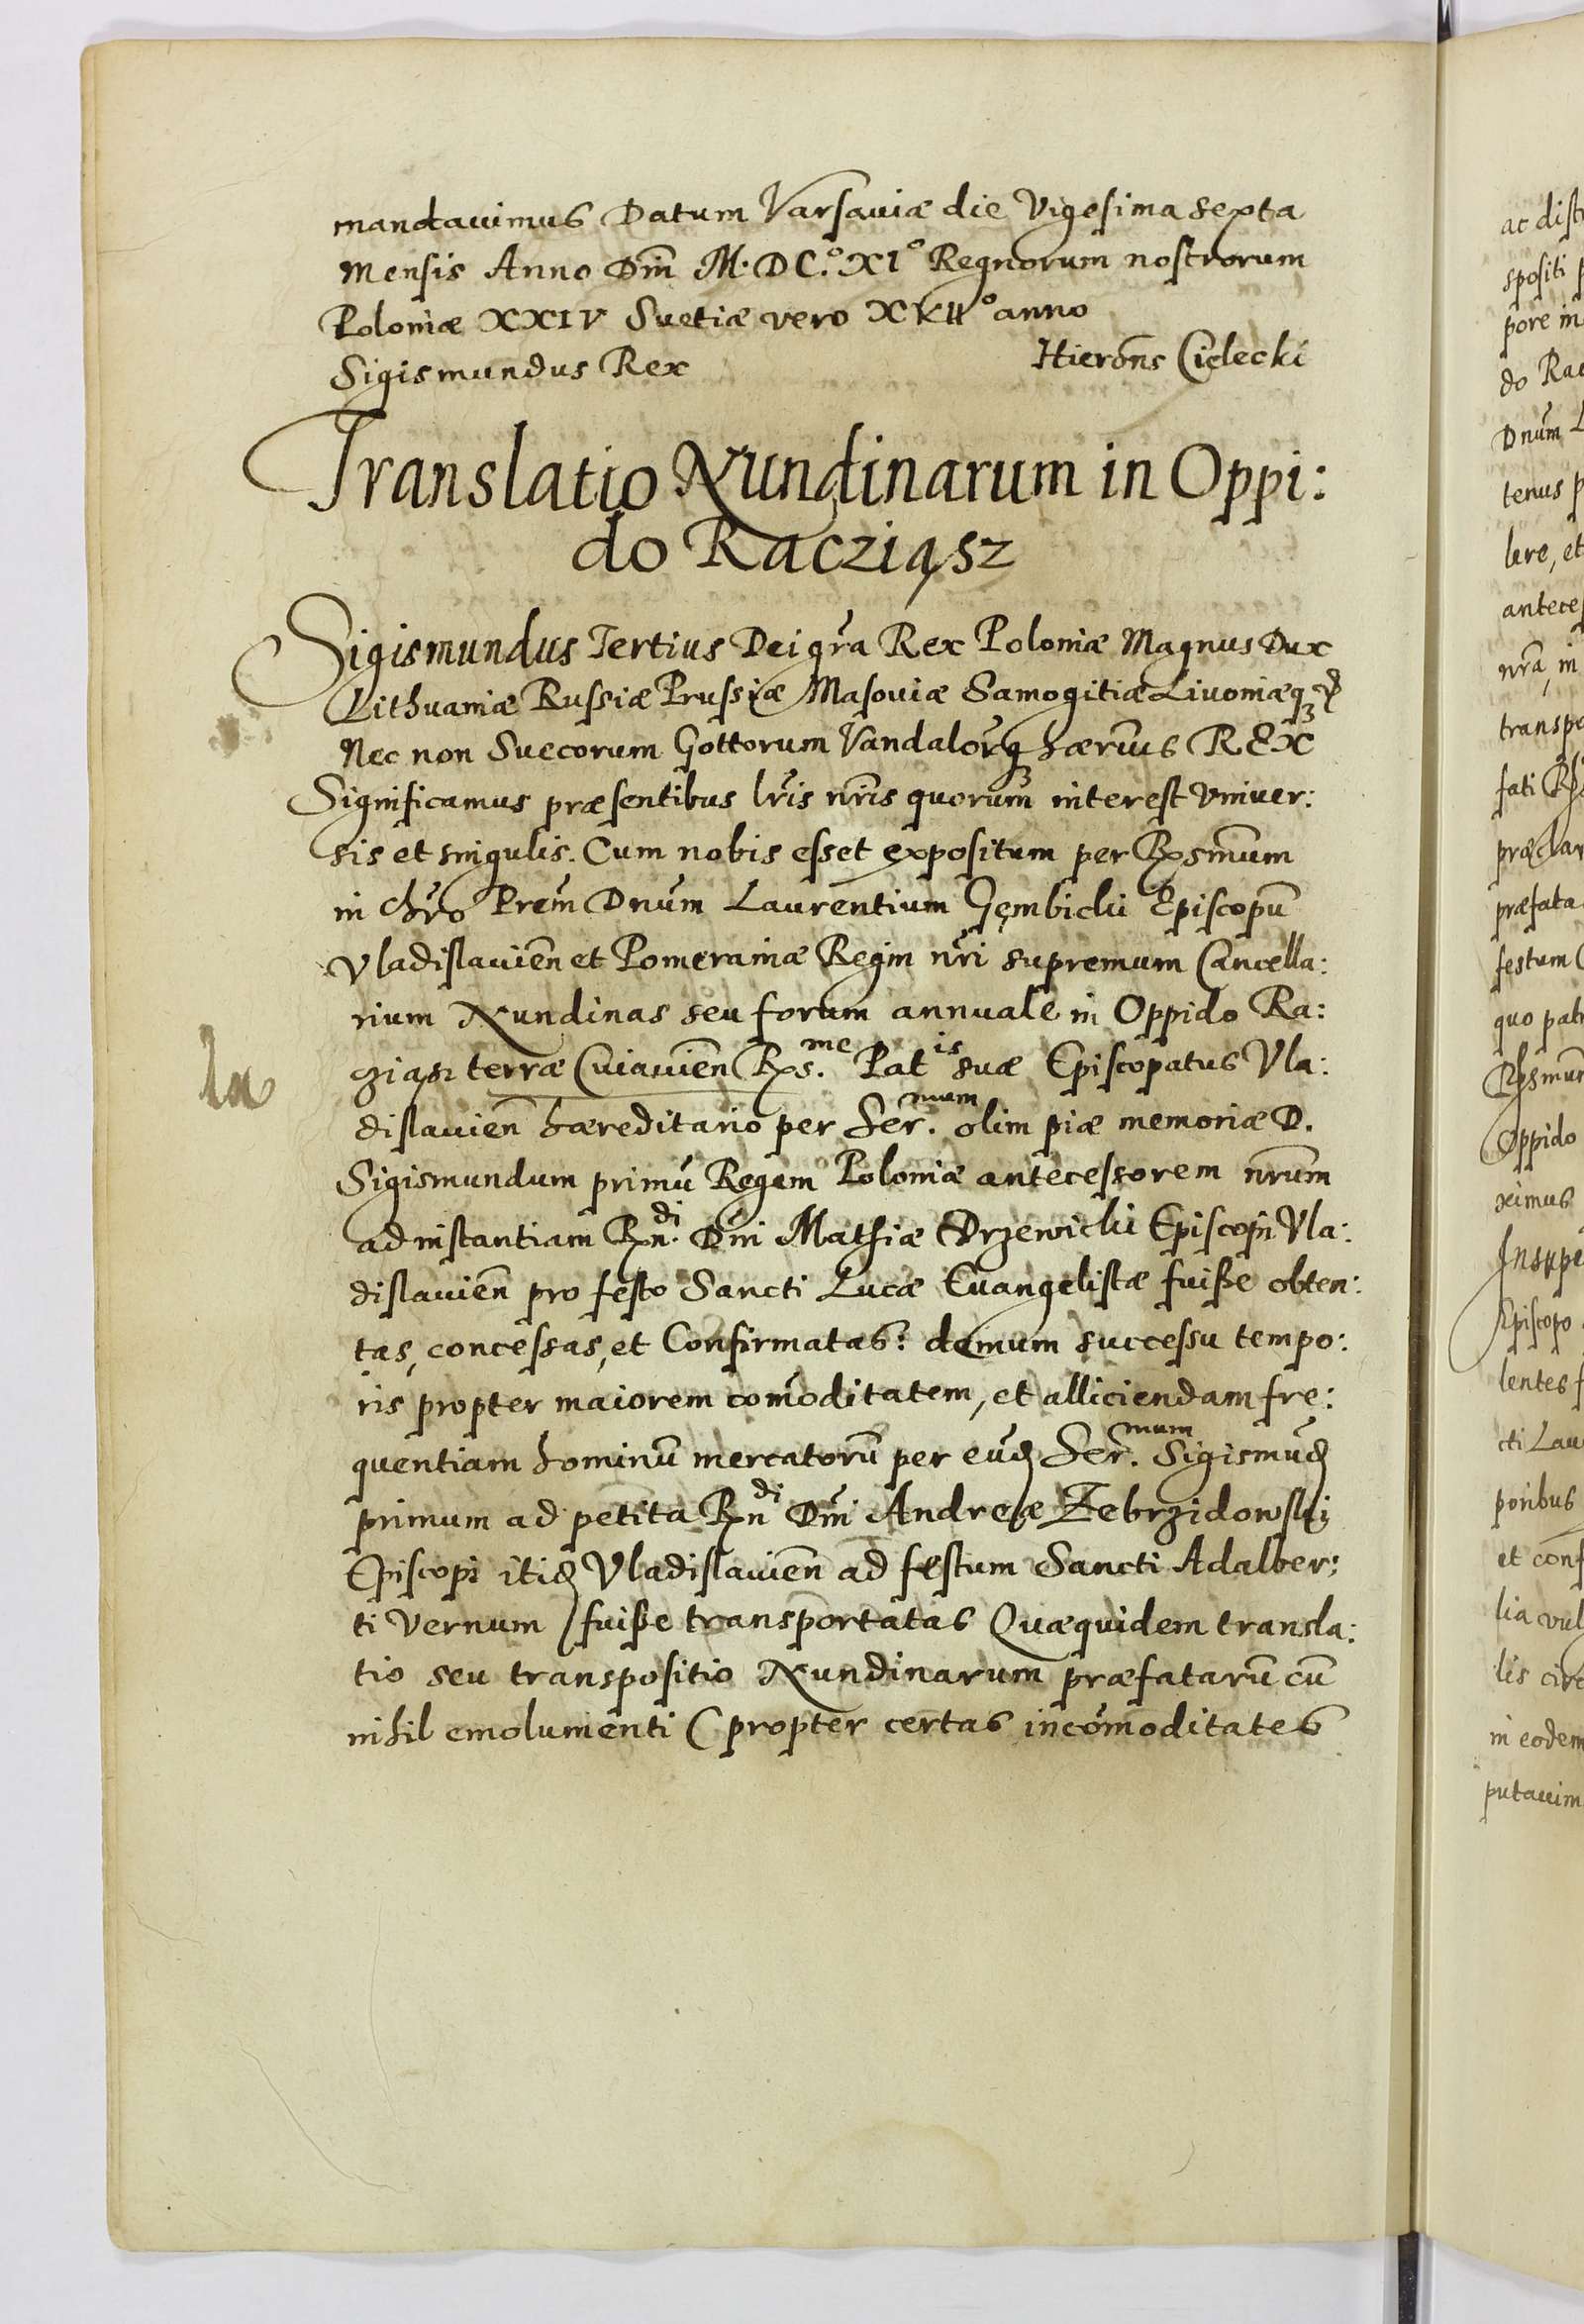 mandauimus Datum Varsauiæ die Vigesima sexta
Mensis Anno Dm̃ M. DC.º XIº Regnorum nostrorum
Poloniæ XXIV Suetiæ vero anno
Sigismundus Rex Hieroñs Cielecki
Translatio Nundinarum in Oppi:
do Racziąsz
Sigismundus Tertius Dei gr̃a Rex Poloniæ Magnus Dux
Lithuaniæ Russiæ Prussiæ Masoviæ Samogitiæ Livoniæq3
Nec non Suecorum Gottorum Vandalor̃q3 hærius REX
Significamus præsentibus lr̃is nr̃is quorum interest vniuer:
sis et singulis. Cum nobis esset expositum per Rs̃mum
in Chr̃o Prem̃ Dnũm Laurentium Gęmbicki Episcopũ
Vladislauieñ et Pomeraniæ Regin nr̃i supremum Cancella:
rium Nundinas seu forum annuale in Oppido Ra:
ziąsz terræ Cuiauieñ Rs.me Pat is suæ Episcopatus Vla:
dislauieñ hæreditario per Ser.mum olim piæ memoriæ D.
Sigismundum primũ Regem Poloniæ antecessorem nr̃um
ad instantiam Rn.di Dñi Mathiæ Drzewicki Episcopi Vla:
dislauieñ pro festo Sancti Lucæ Euangelistæ fuiße obten:
tas, concessas, et Confirmatas: demum successu tempo:
ris propter maiorem com̃oditatem, et alliciendam fre:
quentiam hominũ mercatorũ per eũd Ser.mum Sigismũd
primum ad petita Rndi Dm̃ Andreæ Zebrzidowskį
Episcopi itid Vladislauieñ ad festum Sancti Adalber:
ti Vernum fuiße transportatas Quæquidem transla:
tio seu transpositio Nundinarum præfatarũ cũ
nihil emolumenti (propter certas incom̃oditates
ac dist
spositi p
pore in
do Rac
Dnũm L
tenus p
lere, et
anteces
nr̃a, in
transpo
fati
præclar
præfata
festum
quo pat
Rs̃mum
Oppido
ximus
Insupe
Episcopo
lentes f
cti Lau
poribus
et conf
lia vul
lis circ
in eodem
putauim